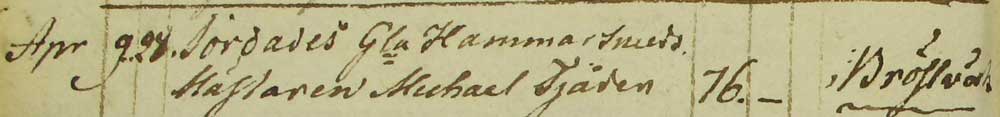 Apr 9. 28. Jordades Gla Hammarsmeds
Mästaren Michael Tjäder 76. – Bröstvärk